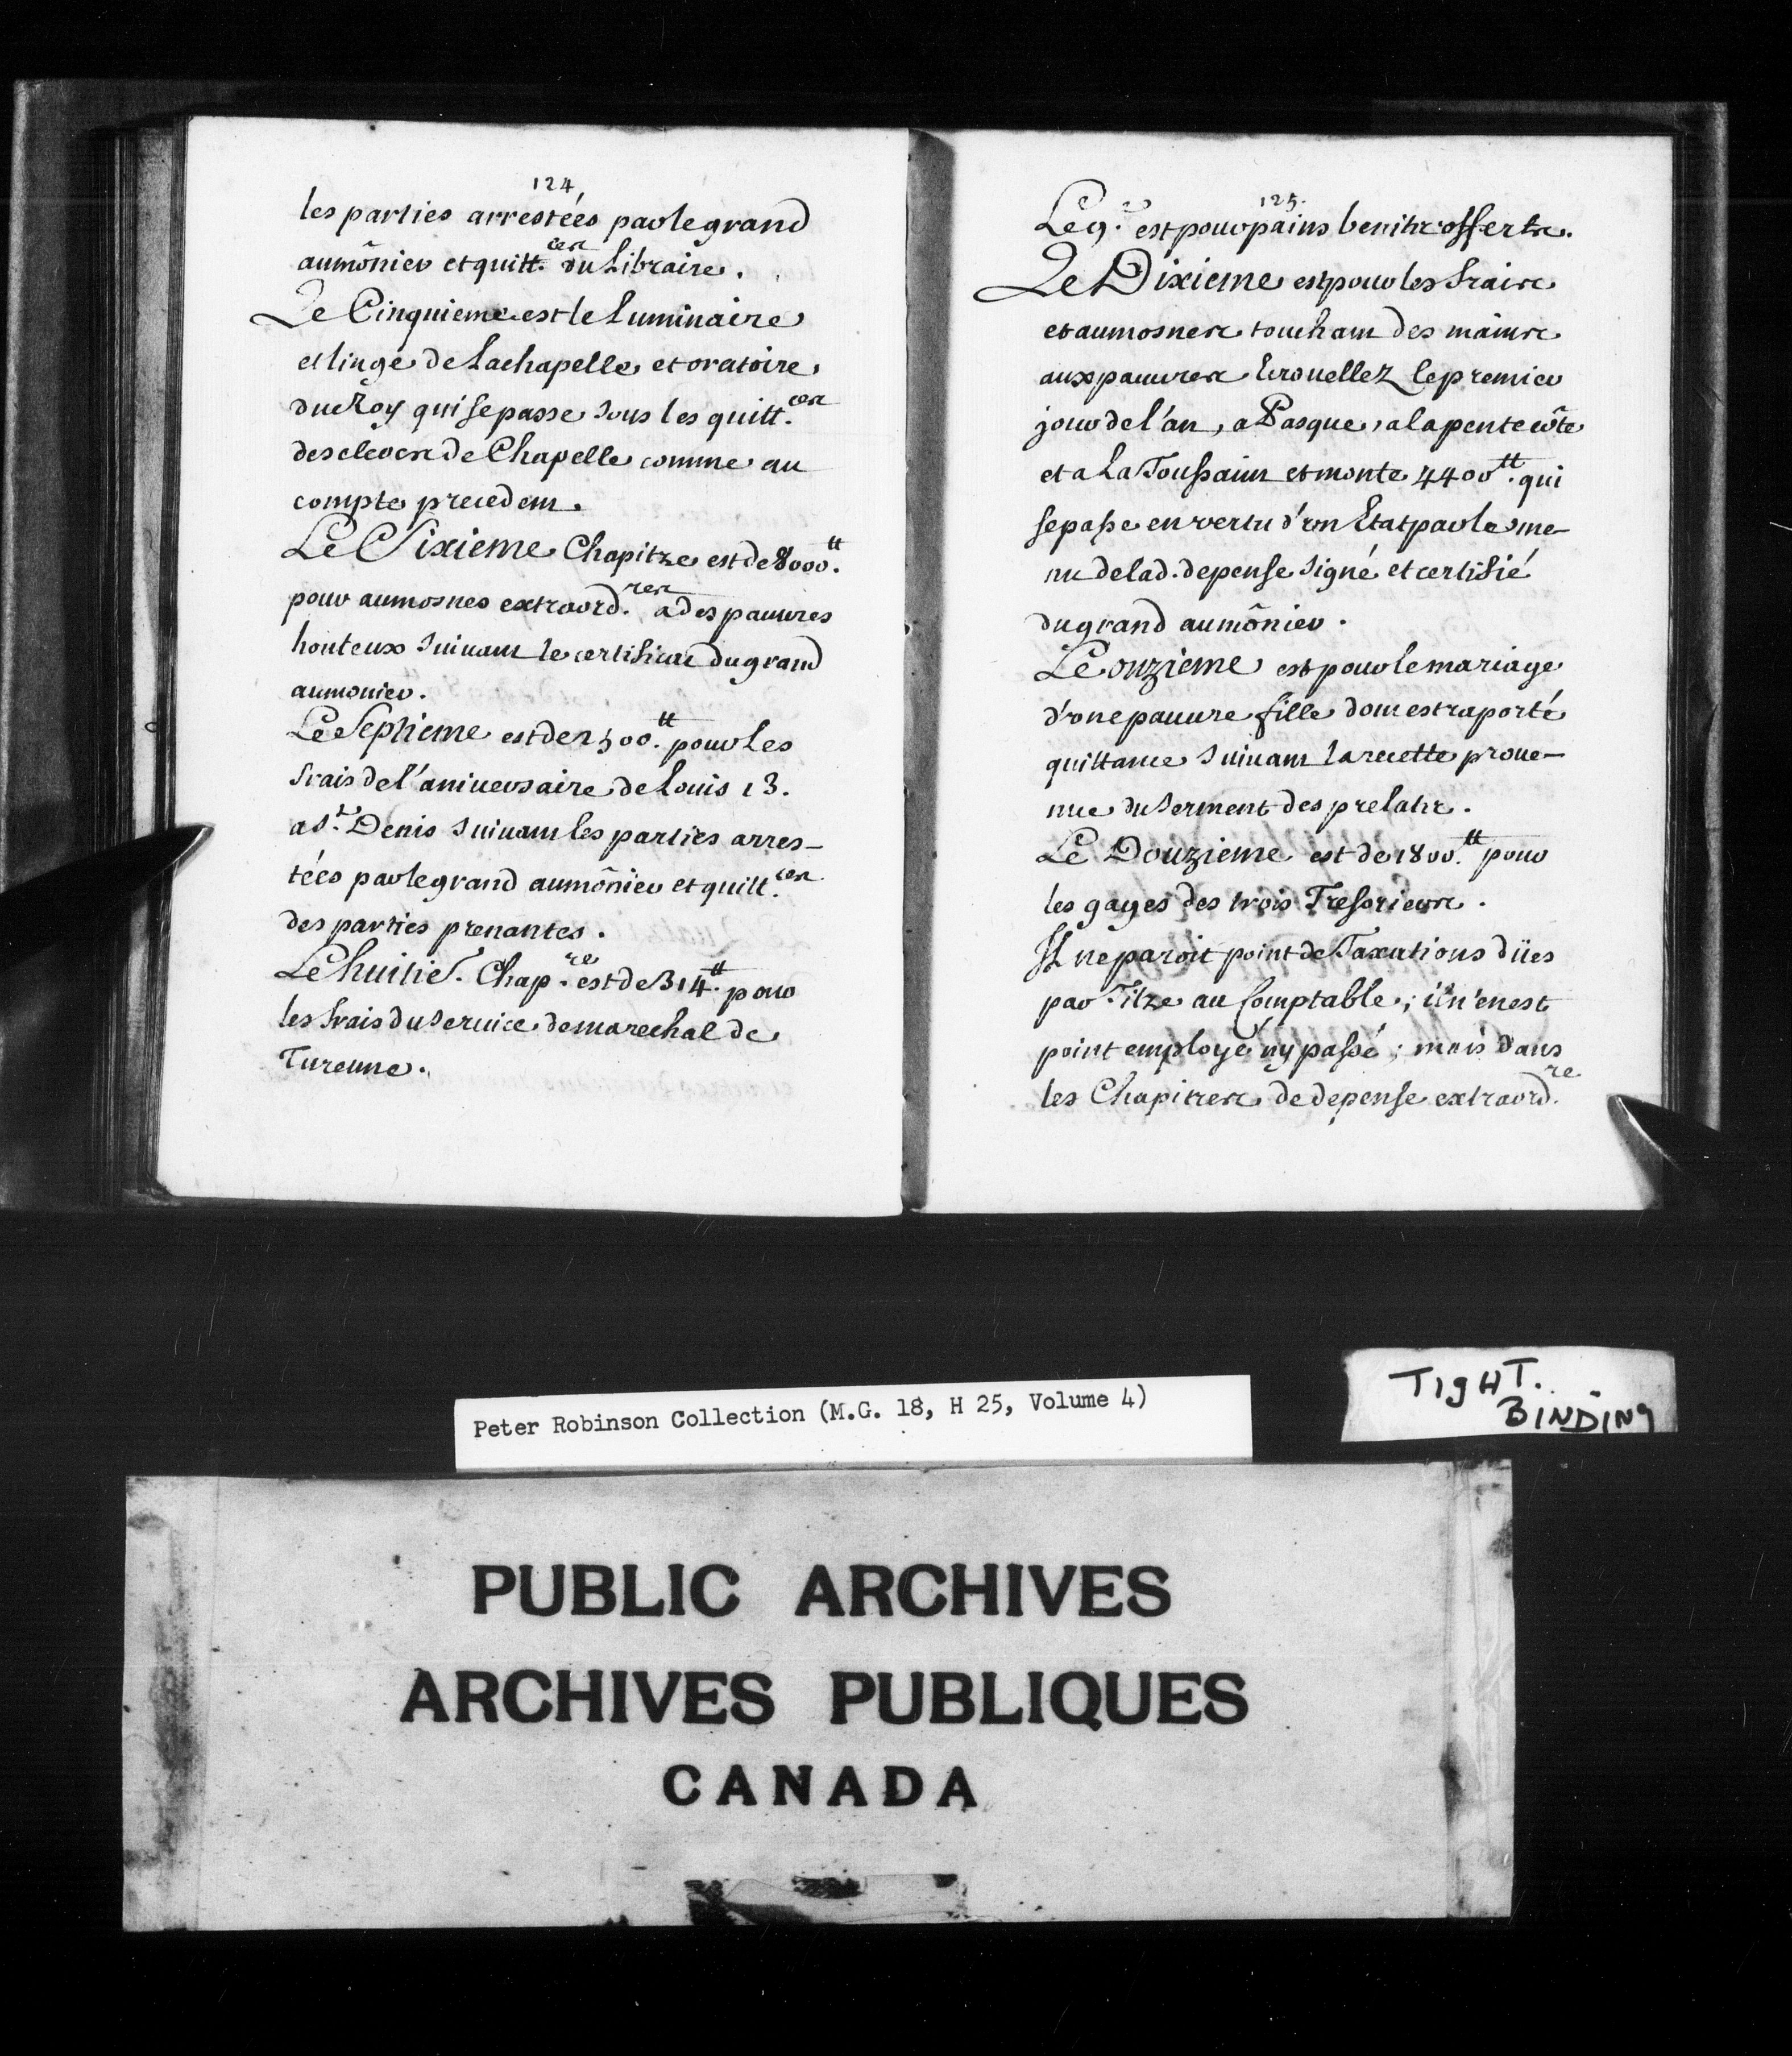 124
les parties arrestées par le grand
aumônier et quitt.ces du Libraire.
Le Cinquieme est le Luminaire
et linge de La chapelle et oratoire
du Roy qui se passe sous les quitt.ces
des clercs de Chapelle comme au
compte precedent.
Le Sixieme Chapitre est de 8000.tt
pour aumosnes extraord.res a des pauvres
honteux suivant le certificat du grand
aumonier.
Le Septieme est de 2500.tt pour Les
frais de l'aniversaire de Louis 13.
a St. Denis suivant les parties arres-
tées par le grand aumônier et quitt.ces
des parties prenantes.
Le huitie. Chap.re est de 314.tt pour
les frais du service de marechal de
Turenne.
125.
Le 9.e est pour pains benits offerts.
Le Dixieme est pour les frais
et aumosnes touchant des mains
aux pauvres Ecrouellez le premier
jour de l'an, a Pasque, a la pentecôte
et a La Toussaint et monte 4400.tt qui
se passe en vertu d'un Etat par le me-
nu de lad. depense signé et certifié
du grand aumônier.
Le onzieme est pour le mariage
d'une pauvre fille dont est raporté
quittance suivant la recette prove-
nue du serment des prelats.
Le Douzieme est de 1800.tt pour
les gages des trois Tresoriers.
Il ne paroit point de Taxations dües
par Titre au Comptable; il n'en est
point employé ny passé; mais dans
les Chapitres de depense extraord.re
Peter Robinson Collection (M.G. 18, H 25, Volume 4)
TIGHT.
BINDING
PUBLIC ARCHIVES
ARCHIVES PUBLIQUES
CANADA